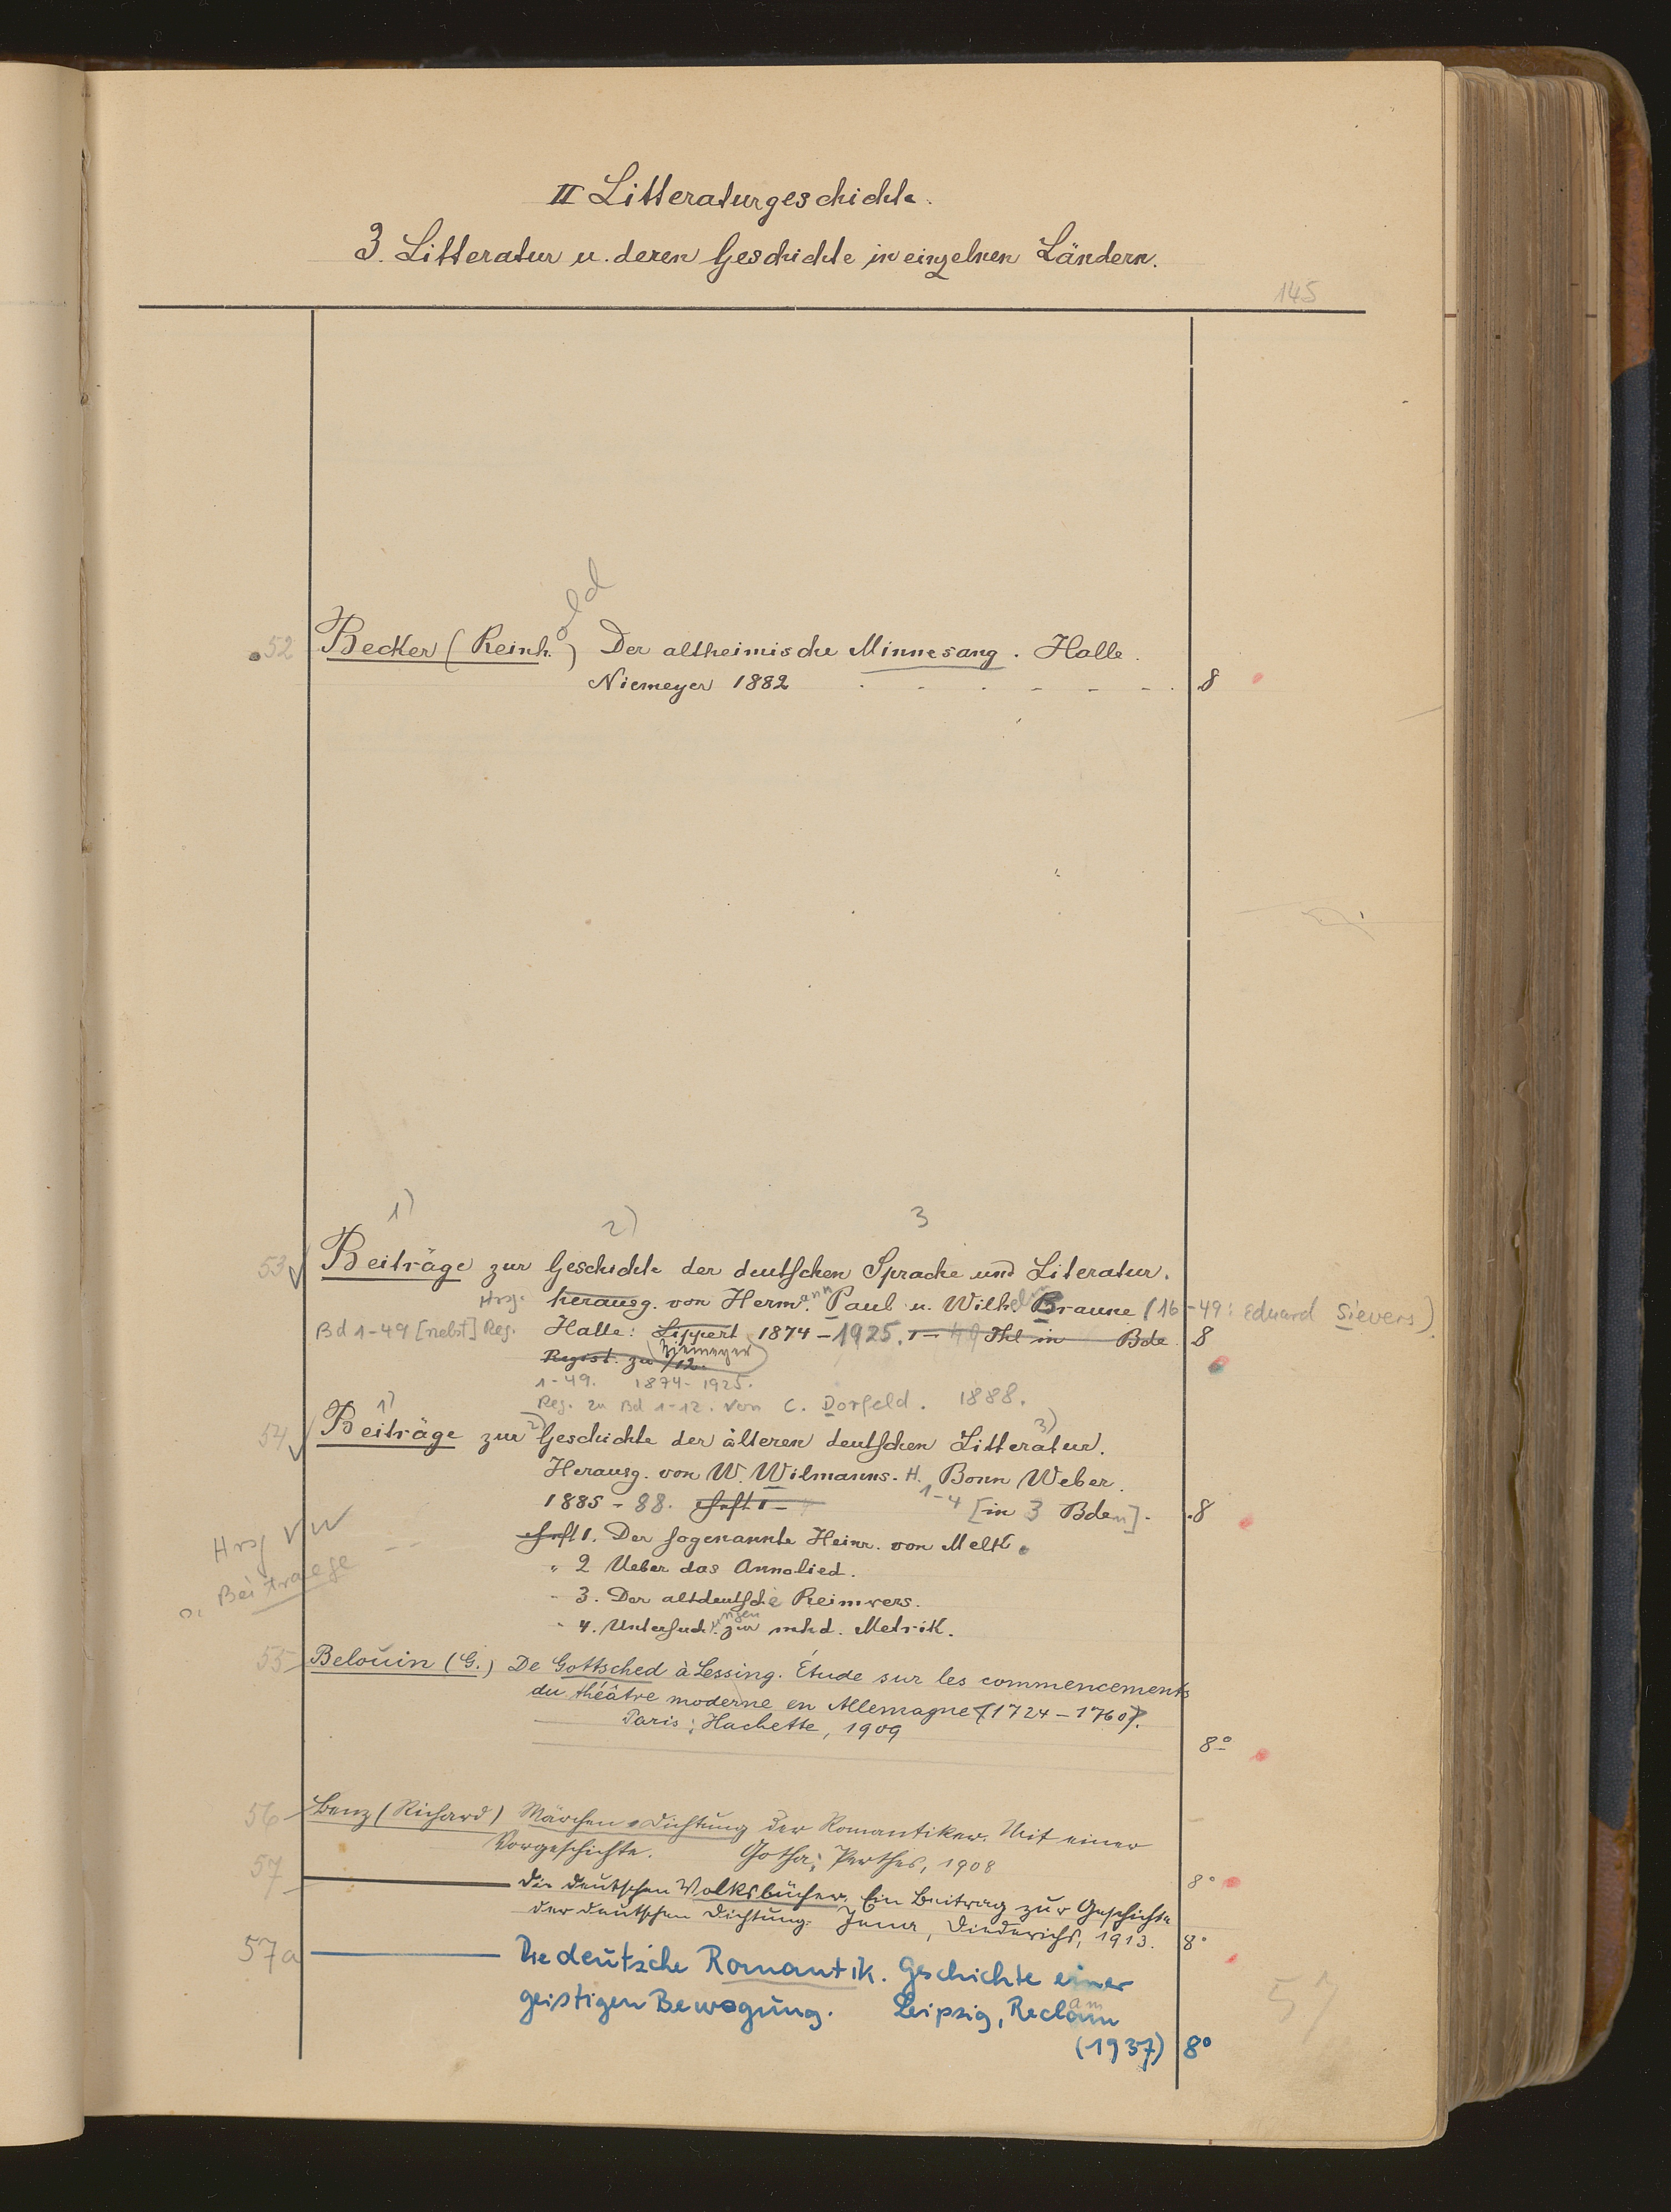 II Litteraturgeschichte.
3. Litteratur u. deren Geschichte in einzelnen Ländern.
145
old
52 Becker (Reinh.) Der altheimische Minnesang. Halle.
Niemeyer 1882 . - . - - - . 8
1) 2) 3
53 Beiträge zur Geschichte der deutschen Sprache und Literatur.
Hrsg. herausg. von Hermann Paul u. Wilhelm Braune (16-49: Eduard Sievers)
Bd 1-49 [nebst] Reg. Halle: Lippert 1874-1925. 1- 49 Thl in Bde. 8
Regist. zu /12. (Niemeyer)
1-49. 1874-1925.
Reg. zu Bd 1-12. von C. Dorfeld. 1888.
1) 2) 3)
54 Beiträge zur Geschichte der älteren deutschen Litteratur.
Herausg. von W. Wilmanns. H. Bonn Weber.
1885-88. Heft 1- 1-4 [in 3 Bden]. 8
Hrsg VW
o. Beitraege
Heft 1. Der sogenannte Heinr. von Melk.
" 2 Ueber das Annolied.
- 3. Der altdeutsche Reimvers.
- 4. Untersuchungen zur mhd. Metrik.
55 Belouin (G.) De Gottsched à Lessing. Étude sur les commencements
du théâtre moderne en Allemagne (1724-1760).
Paris: Hachette, 1909
8°
56 Benz (Richard) Märchen-Dichtung der Romantiker. Mit einer
Vorgeschichte. Gotha: Perthes, 1908
8°
57 ——— Die deutschen Volksbücher. Ein Beitrag zur Geschichte
der deutschen Dichtung. Jena, Diederichs, 1913. 8°
57a ——— Die deutsche Romantik. Geschichte einer
geistigen Bewegung. Leipzig, Reclam
am
(1937) 8°
57